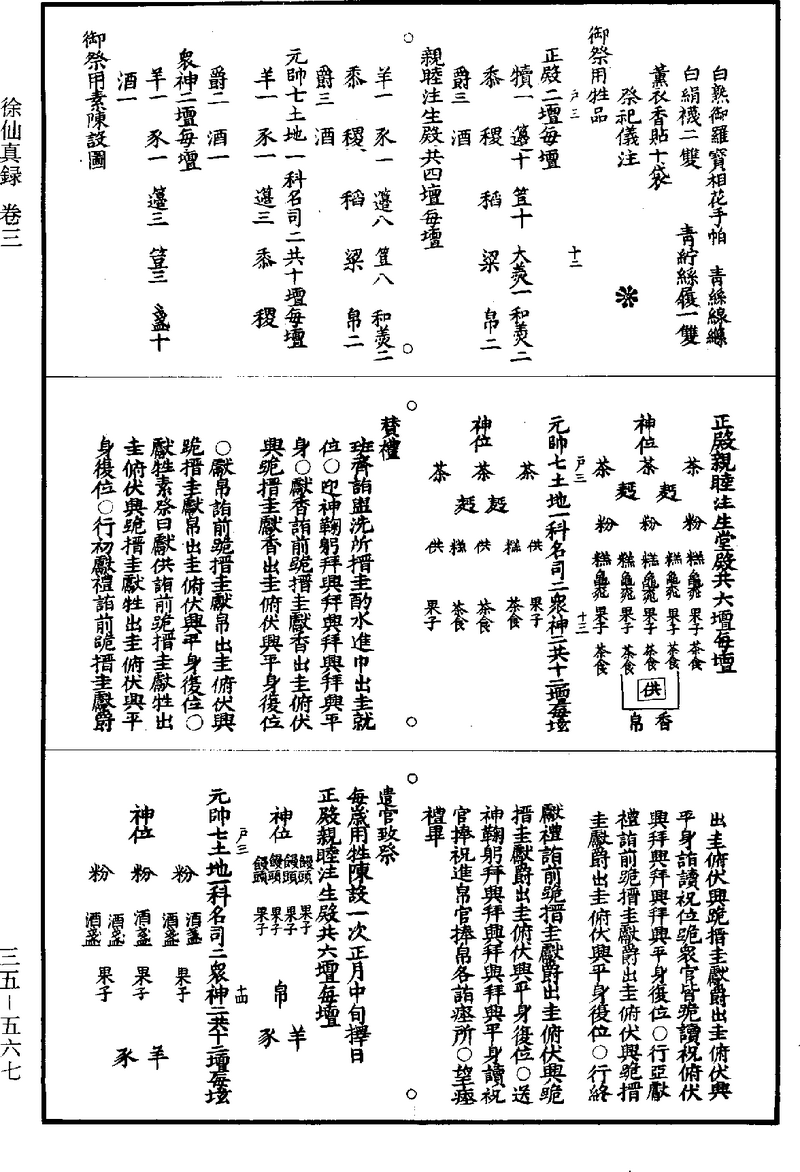 徐仙真録 卷三
三五—五六七
白熟御羅寶相花手帕 青絲線縧
白絹襪二雙 青紵絲履一雙
薰衣香貼十袋
祭祀儀注
御祭用牲品
戶三 十二
正殿二壇每壇
犢一 籩十 豆十 大羮一 和羮二
黍 稷 稻 粱 帛二
爵三 酒
親睦注生殿共四壇每壇
羊一 豕一 籩八 豆八 和羮二
黍 稷 稻 粱 帛二
爵三 酒
元帥七土地一科名司二共十壇每壇
羊一 豕一 籩三 黍 稷
爵二 酒一
衆神二壇每壇
羊一 豕一 籩三 豆三 盞十
酒一
御祭用素陳設圖
正殿親睦注生堂殿共六壇每壇
神位
茶 茶 茶
麪 麪
粉 粉 粉
糕 糕 糕 糕 糕
果子 果子 果子 果子 果子
茶食 茶食 茶食 茶食 茶食
供
香
帛
戶三 十三
元帥七土地一科名司二衆神二共十二壇每壇
神位
茶 茶 茶
麪 麪
供 糕 供 糕 供
果子 茶食 茶食 茶食 果子
賛禮
班齊詣盥洗所搢圭酌水進巾出圭就
位○迎神鞠躬拜興拜興拜興拜興平
身○獻香詣前跪搢圭獻香出圭俯伏
興跪搢圭獻香出圭俯伏興平身復位
○獻帛詣前跪搢圭獻帛出圭俯伏興
跪搢圭獻帛出圭俯伏興平身復位○
獻牲素祭曰獻供詣前跪搢圭獻牲出
圭俯伏興跪搢圭獻牲出圭俯伏興平
身復位○行初獻禮詣前跪搢圭獻爵
出圭俯伏興跪搢圭獻爵出圭俯伏興
平身詣讀祝位跪衆官皆跪讀祝俯伏
興拜興拜興平身復位○行亞獻
禮詣前跪搢圭獻爵出圭俯伏興跪搢
圭獻爵出圭俯伏興平身復位○行終
獻禮詣前跪搢圭獻爵出圭俯伏興跪
搢圭獻爵出圭俯伏興平身復位○送
神鞠躬拜興拜興拜興拜興平身讀祝
官捧祝進帛官捧帛各詣瘞所○望瘞
禮畢
遣官致祭
每歲用牲陳設一次正月中旬擇日
正殿親睦注生殿共六壇每壇
神位
饅頭 饅頭 饅頭 饅頭
果子 果子 果子 果子
帛
羊
豕
戶三 十四
元帥七土地一科名司二衆神二共十二壇每壇
神位
粉 粉 粉
酒盞 酒盞 酒盞 酒盞 酒盞
果子 果子 果子
羊
豕